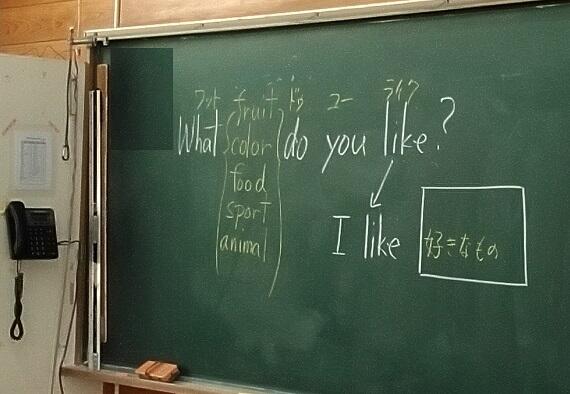 ワット fruit ドゥ ユー ライク
What color do you like?
food
sport
I like 好きなもの
animal